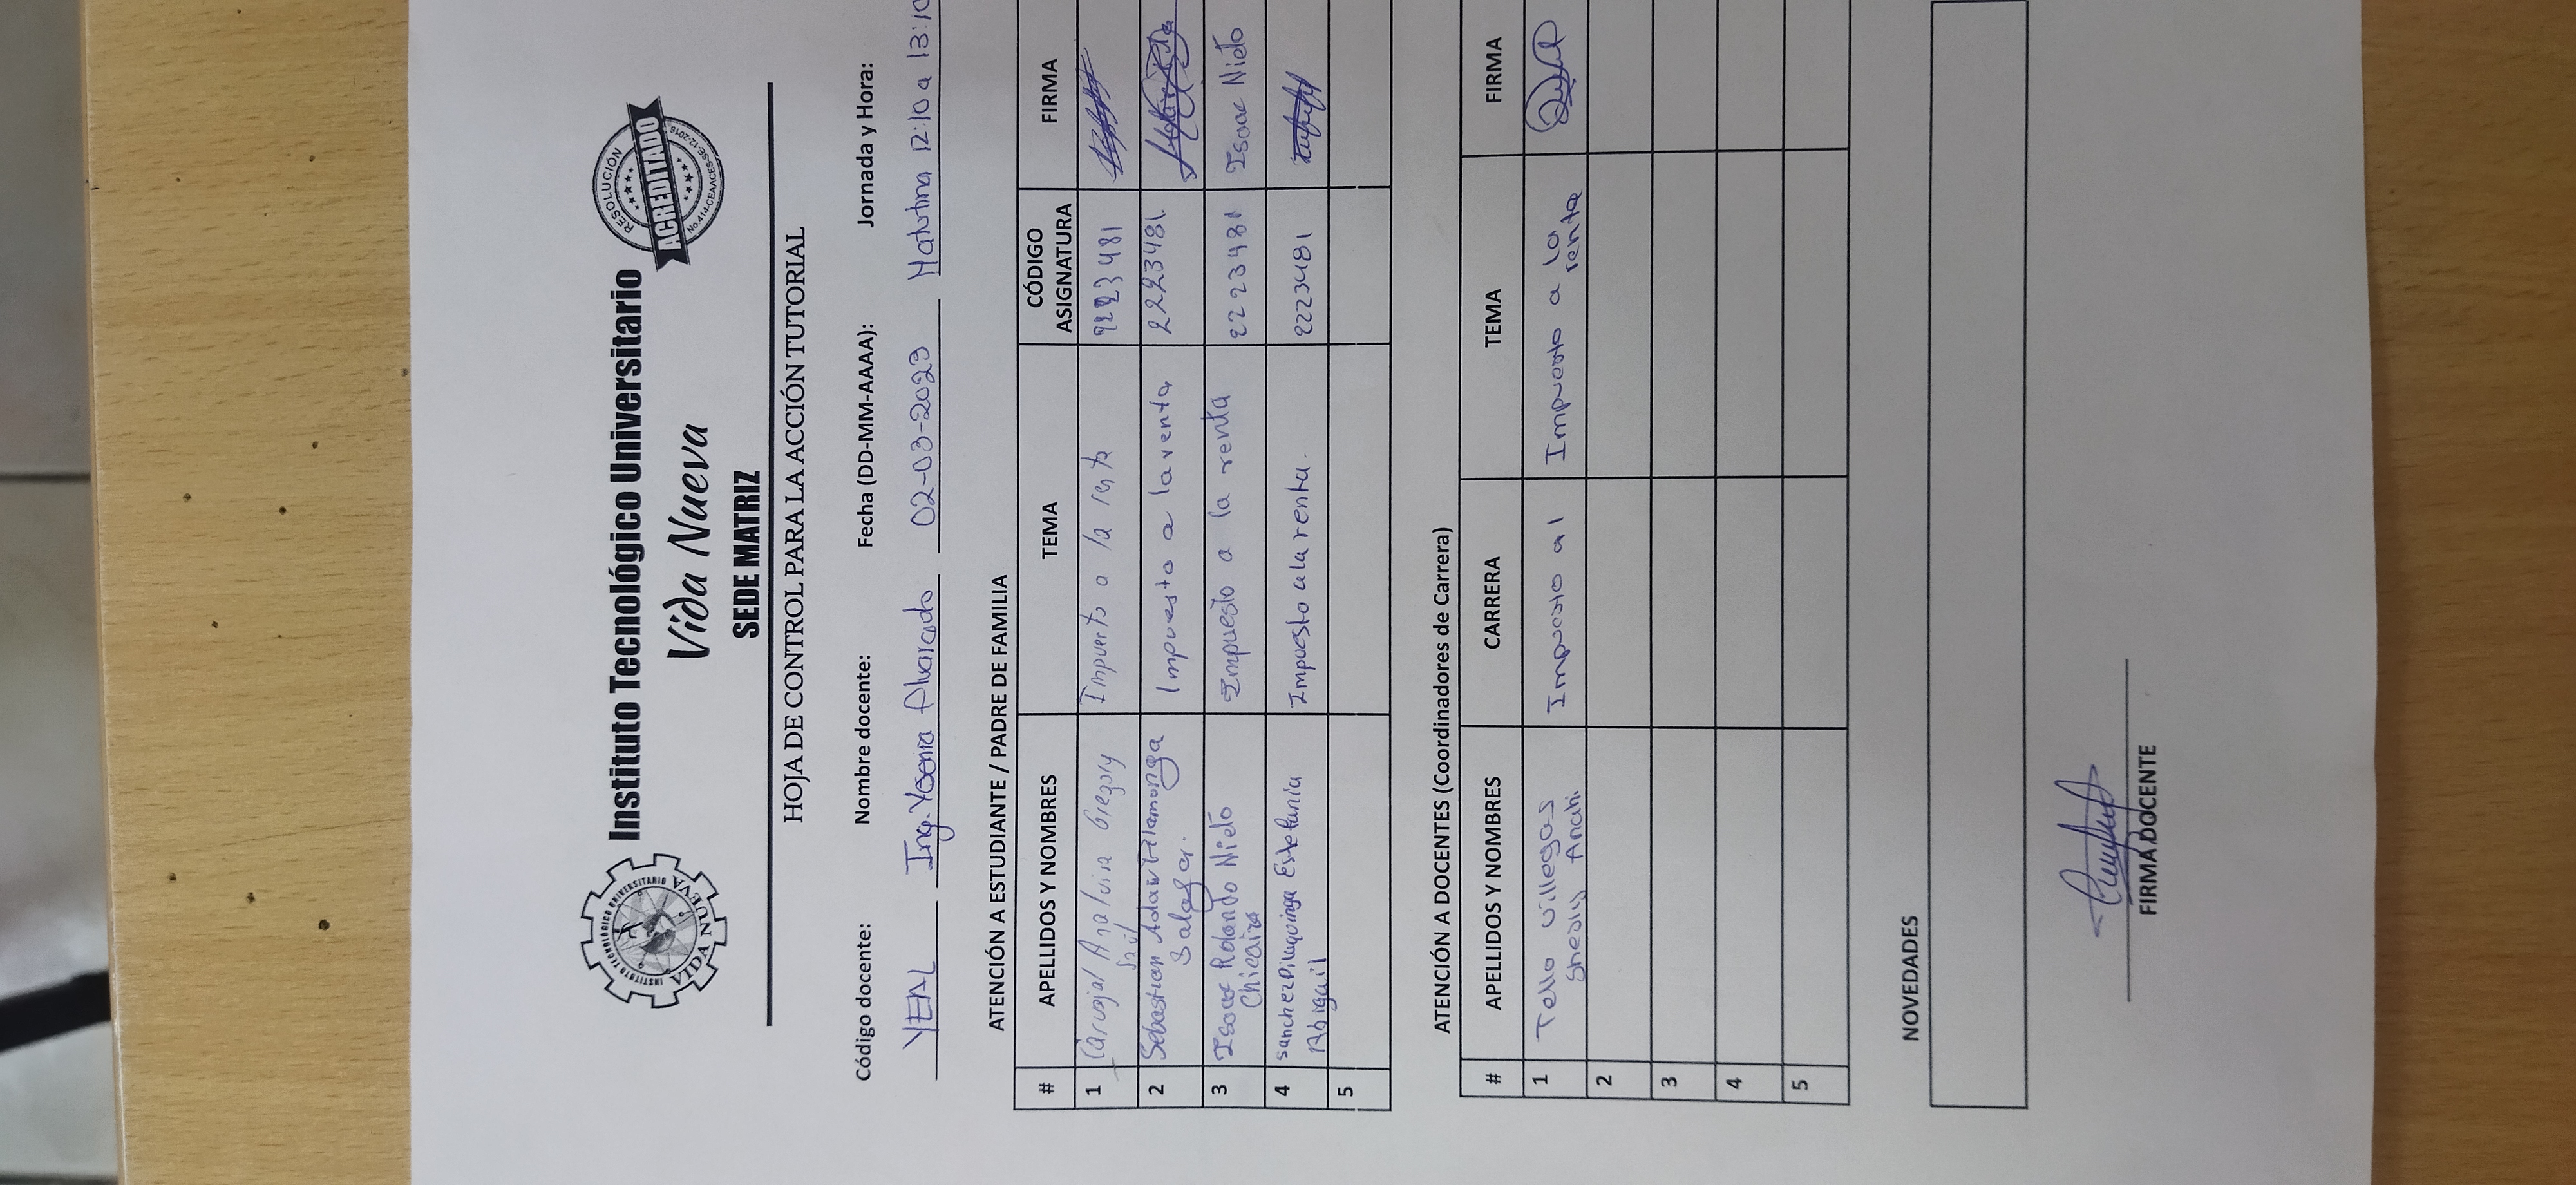 Instituto Tecnológico Universitario
Vida Nueva
SEDE MATRIZ
INSTITUTO TECNOLÓGICO UNIVERSITARIO
VIDA NUEVA
RESOLUCIÓN
ACREDITADO
No. 414-CEAACES-SE-12-2016
HOJA DE CONTROL PARA LA ACCIÓN TUTORIAL
Código docente: Nombre docente: Fecha (DD-MM-AAAA): Jornada y Hora:
YEAL Ing. Yesenia Alvarado 02-03-2023 Matutina 12:10 a 13:10
ATENCIÓN A ESTUDIANTE / PADRE DE FAMILIA
# APELLIDOS Y NOMBRES TEMA CÓDIGO ASIGNATURA FIRMA
1 Carvajal Gregory Saúl Impuerto a la renta 2223481
2 Sebastian Adair Vilamunga Salazar. Impuesto a la venta 2223481.
3 Isaac Rolando Nieto Chicaiza Impuesto a la renta 2223481 Isaac Nieto
4 Sanchez Pilaquinga Estefania Abigail Impuesto a la renta. 2223481
5
ATENCIÓN A DOCENTES (Coordinadores de Carrera)
# APELLIDOS Y NOMBRES CARRERA TEMA FIRMA
1 Tello Villegas Anahi. Impuesto al Impuesto a la renta
2
3
4
5
NOVEDADES
FIRMA DOCENTE